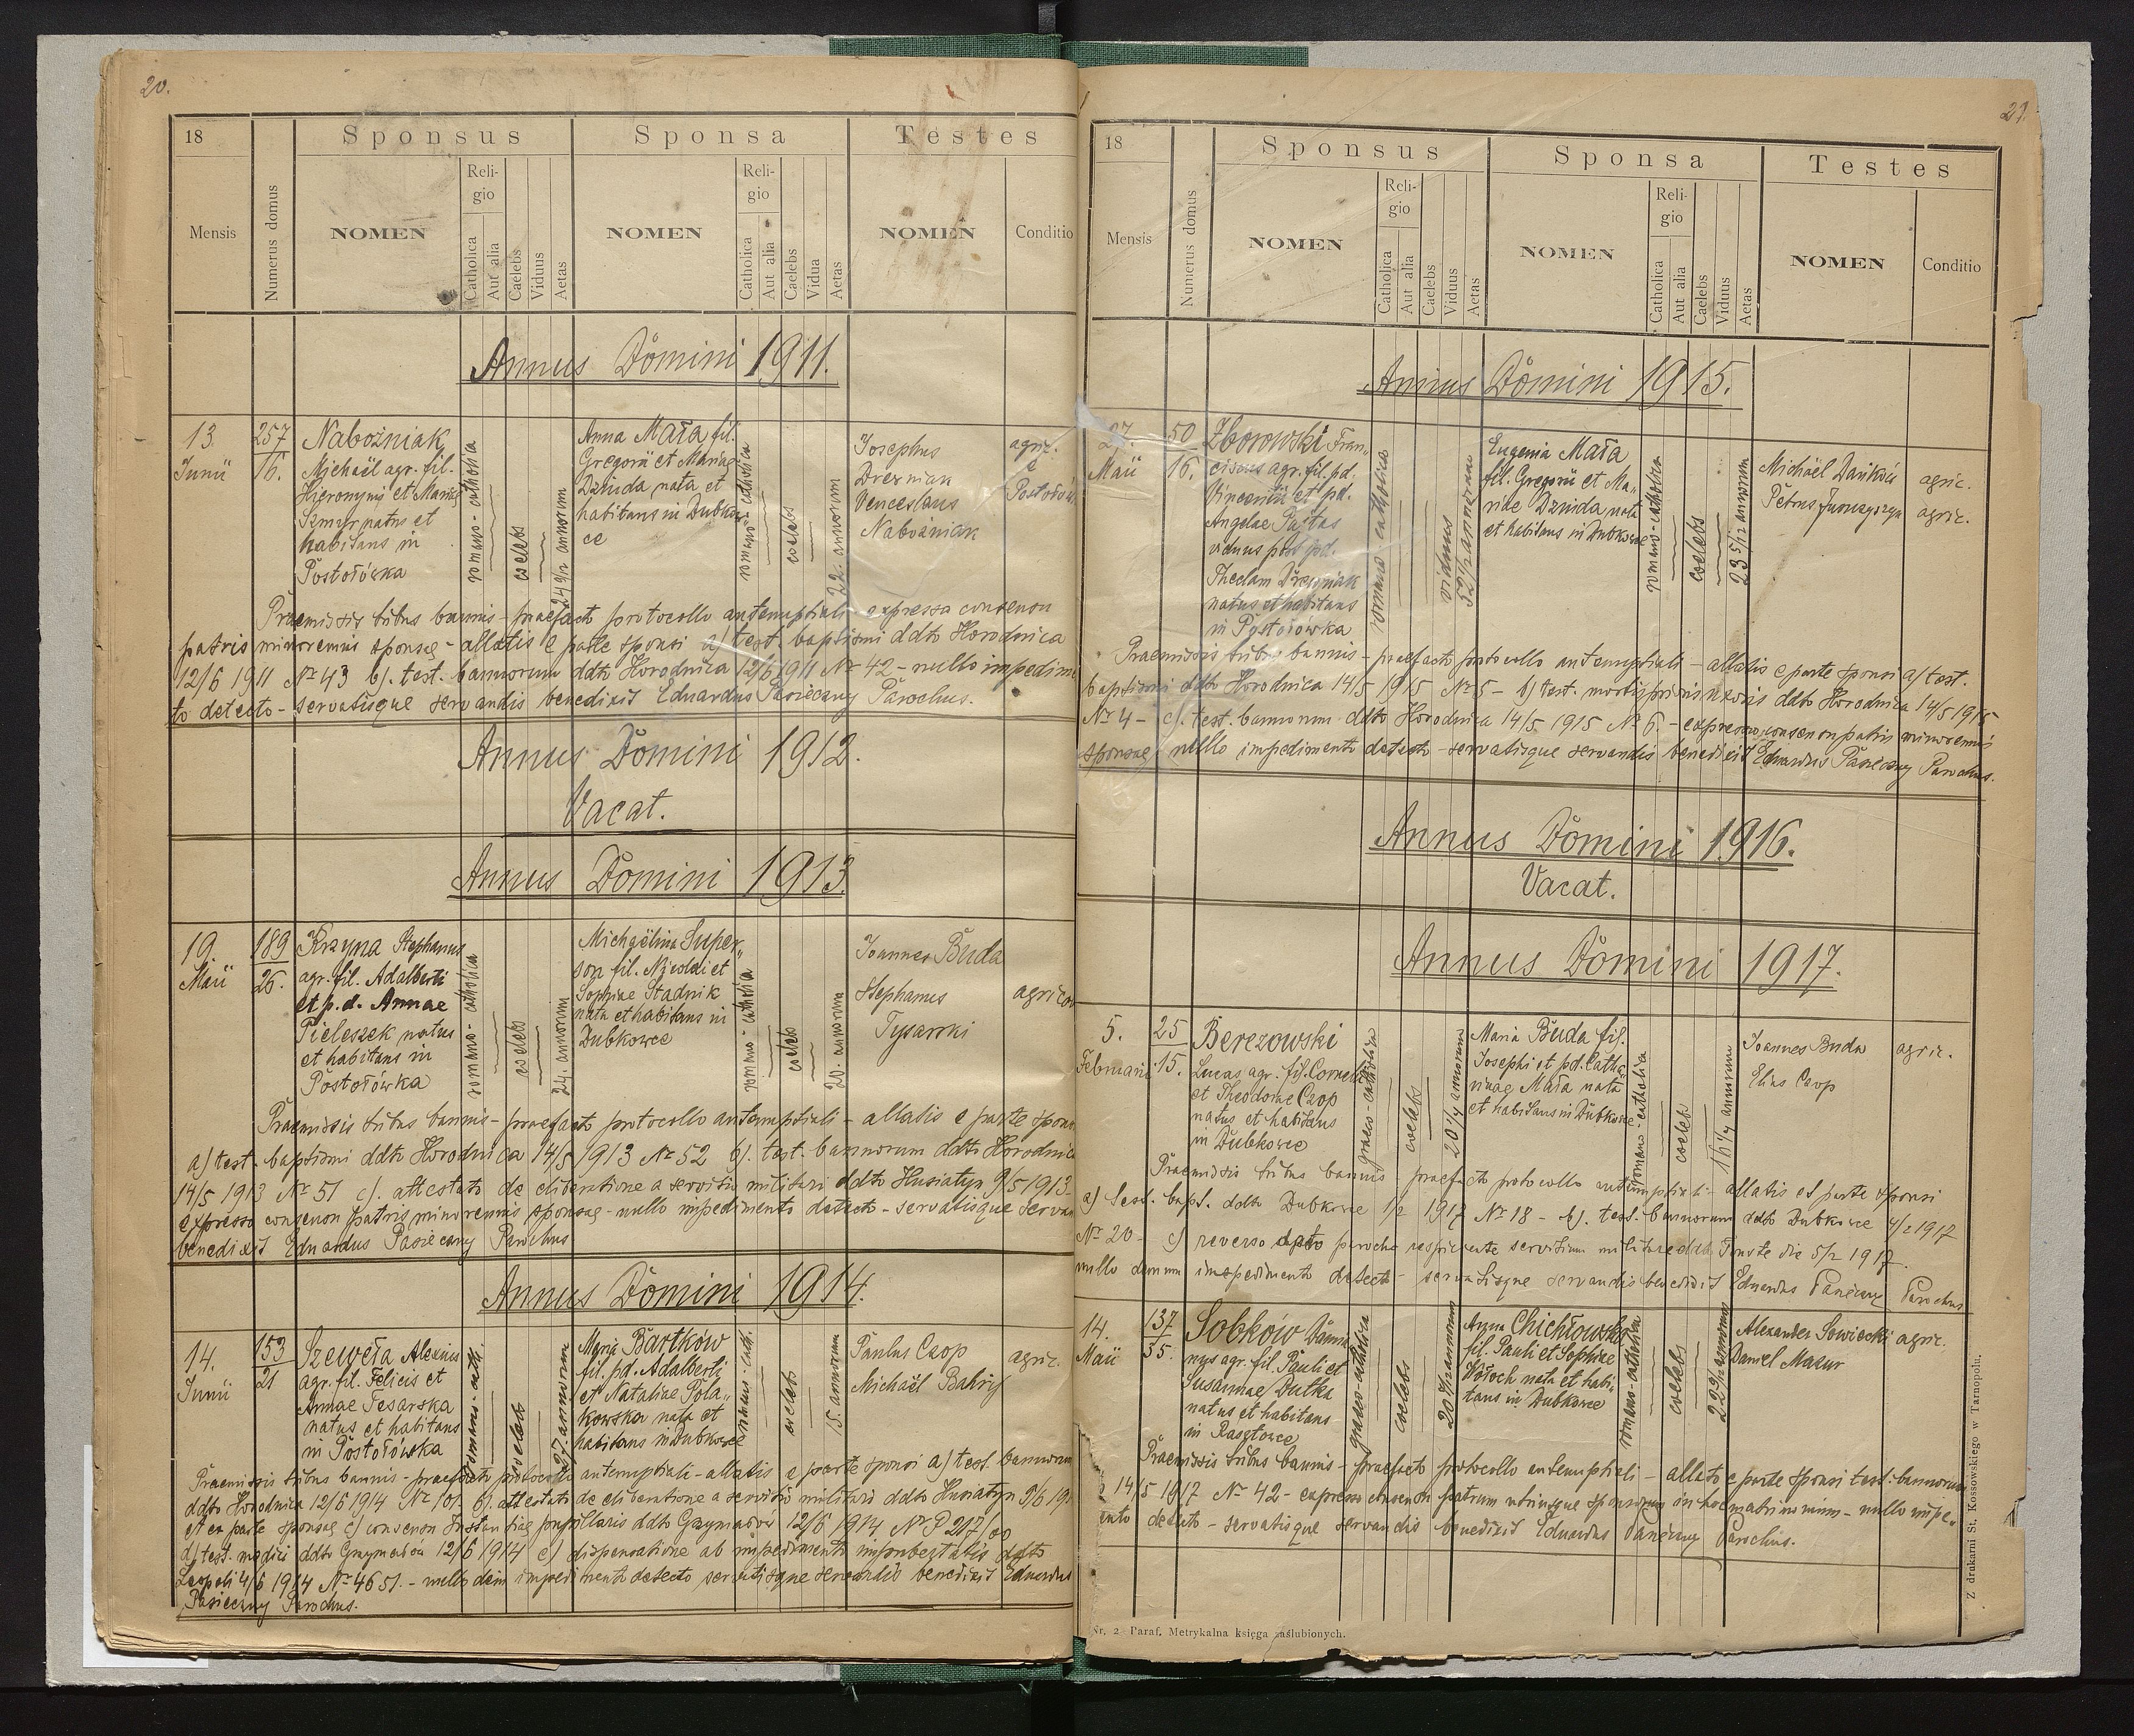 20.
18
Sponsus
Sponsa
Testes
Mensis
Numerus domus
NOMEN
Religio
Catholica
Aut alia
Caelebs
Viduus
Aetas
NOMEN
Religio
Catholica
Aut alia
Caelebs
Vidua
Aetas
NOMEN
Conditio
Annus Domini 1911.
13
Junii
257
16.
Nabożniak
Michaël agr. fil.
Hieronymi et Mariae
Szmyr natus et
habitans in
Postołówka
romano-catholica
coelebs
24 9/12 annorum
Anna Mała fil.
Gregorii et Mariae
Dznida nata et
habitans in Dubkow
ce
romano-catholica
coelebs
22. annorum
Josephus
Drewniak
Venceslaus
Nabożniak
agric.
e
Postołów.
Praemissis tribus bannis - praefacto protocollo antenuptiali - expressa consenon
patris minorennis sponsae - allatis e parte sponsi a) test. baptismi ddto Horodnica
12/6 1911 No 43 b). test. bannorum ddto Horodnica 12/6 1911 No 42 - nullo impedimen
to detecto - servatisque servandis benedixit Eduardus Pasieczny Parochus.
Annus Domini 1912.
Vacat.
Annus Domini 1913.
19.
Maii
189
26.
Krzyna Stephanus
agr. fil. Adalberti
et p.d. Annae
Pieleszek natus
et habitans in
Postołówka
romano-catholica
coelebs
24. annorum
Michaëlina Super„
son fil. Nicolai et
Sophiae Stadnik
nata et habitans in
Dubkowce
romano-catholica
coelebs
20. annorum
Joannes Buda
Stephanus
Tysarski
agricol
Praemissis tribus bannis - praefacto protocollo antenuptiali - allatis e parte sponsi
a) test. baptismi ddto Horodnica 14/5 1913 No 52 b). test. bannorum ddto Horodnica
14/5 1913 No 51 c). attestato de eliberatione a servitio militari ddto Husiatyn 9/5 1913 -
expresso consenon patris minorennis sponsae - nullo impedimento detecto - servatisque servan
benedixit Eduardus Pasieczny Parochus
Annus Domini 1914.
14.
Junii
153
21
Szeweła Alexius
agr. fil. Felicis et
Annae Tesarska
natus et habitans
in Postołówka
romano-cath.
coelebs
27. annorum
Maria Bartków
fil. pd. Adalberti
et Nataliae Pola„
kowska nata et
habitans in Dubkowce
romano-cath.
coelebs
15. annorum
Paulus Czop
Michaël Babrij
agric.
Praemissis tribus bannis - praefacto protocollo antenuptiali - allatis e parte sponsi a) test. bannorum
ddto Horodnica 12/6 1914 No 101. b). attestato de eliberatione a servitio militari ddto Husiatyn 5/6 191
et ex parte sponsae c) consenon Instantiae pupillaris ddto Grzymałów 12/6 1914 No P 217/00
d) test. medici ddto Grzymałów 12/6 1914 e) dispensatione ab impedimento impubertatis ddto
Leopoli 4/6 1914 No 4651. - nullo dein impedimento detecto servatisque servandis benedixit Eduardus
Pasieczny Parochus.
21.
18
Sponsus
Sponsa
Testes
Mensis
Numerus domus
NOMEN
Religio
Catholica
Aut alia
Caelebs
Viduus
Aetas
NOMEN
Religio
Catholica
Aut alia
Caelebs
Viduus
Aetas
NOMEN
Conditio
Annus Domini 1915.
27.
Maii
50
16.
Zborowski Fran„
ciscus agr. fil. pd.
Vincentii et pd.
Angelae Pastas
viduus post pd.
Theclam Drewniak
natus et habitans
in Postołówka
romano catholica
viduus
52 1/2 annorum
Eugenia Mała
fil. Gregorii et Ma„
riae Dznida nata
et habitans in Dubkowce
romano-catholica
coelebs
23 5/12 annorum
Michaël Dańków
Petrus
agric.
agric.
Praemissis tribus bannis - praefacto protocollo antenuptiali - allatis e parte sponsi a) test.
baptismi ddto Horodnica 14/5 1915 No 5 - b) test. mortis prioris uxoris ddto Horodnica 14/5 1915
No 4 - c). test. bannorum ddto Horodnica 14/5 1915 No 6. - expresso consenon patris minorennis
sponsae nullo impedimento detecto - servatisque servandis benedixit Eduardus Pasieczny Parochus.
Annus Domini 1916.
Vacat.
Annus Domini 1917.
5.
Februarii
25
15.
Berezowski
Lucas agr. fil. Cornelii
et Theodorae Czop
natus et habitans
in Dubkowce
graeco-catholica
coelebs
20 1/4 annorum
Maria Buda fil.
Josephi et pd. Catha„
rinae Mała nata
et habitans in Dubkowce
romano-catholica
coelebs
16 1/4 annorum
Joannes Buda
Elias Czop
agric.
Praemissis tribus bannis - praefacto protocollo antenuptiali - allatis et parte sponsi
a) test. bapt. ddto Dubkowce 1/2 1917 No 18 - b). test. bannorum ddto Dubkowce 4/2 1917
No 20 - c) reverso dato parocho respiciente servitium militare ddto Touste die 5/2 1917.
nullo demum impedimento detecto - servatisque servandis benedixit Eduardus Pasieczny Parochus
14.
Maii
137
35.
Sobków Damia„
nus agr. fil. Pauli et
Susannae Dutka
natus et habitans
in Rasztowce
graeco-catholica
coelebs
annorum
Anna Chichłowska
fil. Pauli et Sophiae
Wołoch nata et habi„
tans in Dubkowce
romano-catholica
coelebs
annorum
Alexander Sowiecki
Daniel Mazur
agric.
Praemissis tribus bannis - praefacto protocollo antenuptiali - allato e parte sponsi test. bannorum
14/5 1917 No 42 - expresso consenon patrum utriusque sponsorum in hoc matrimonium - nullo impe„
ento detecto - servatisque servandis benedixit Eduardus Pasieczny Parochus.
Nr. 2 Paraf. Metrykalna księga zaślubionych.
Z drukarni St. Kossowskiego w Tarnopolu.